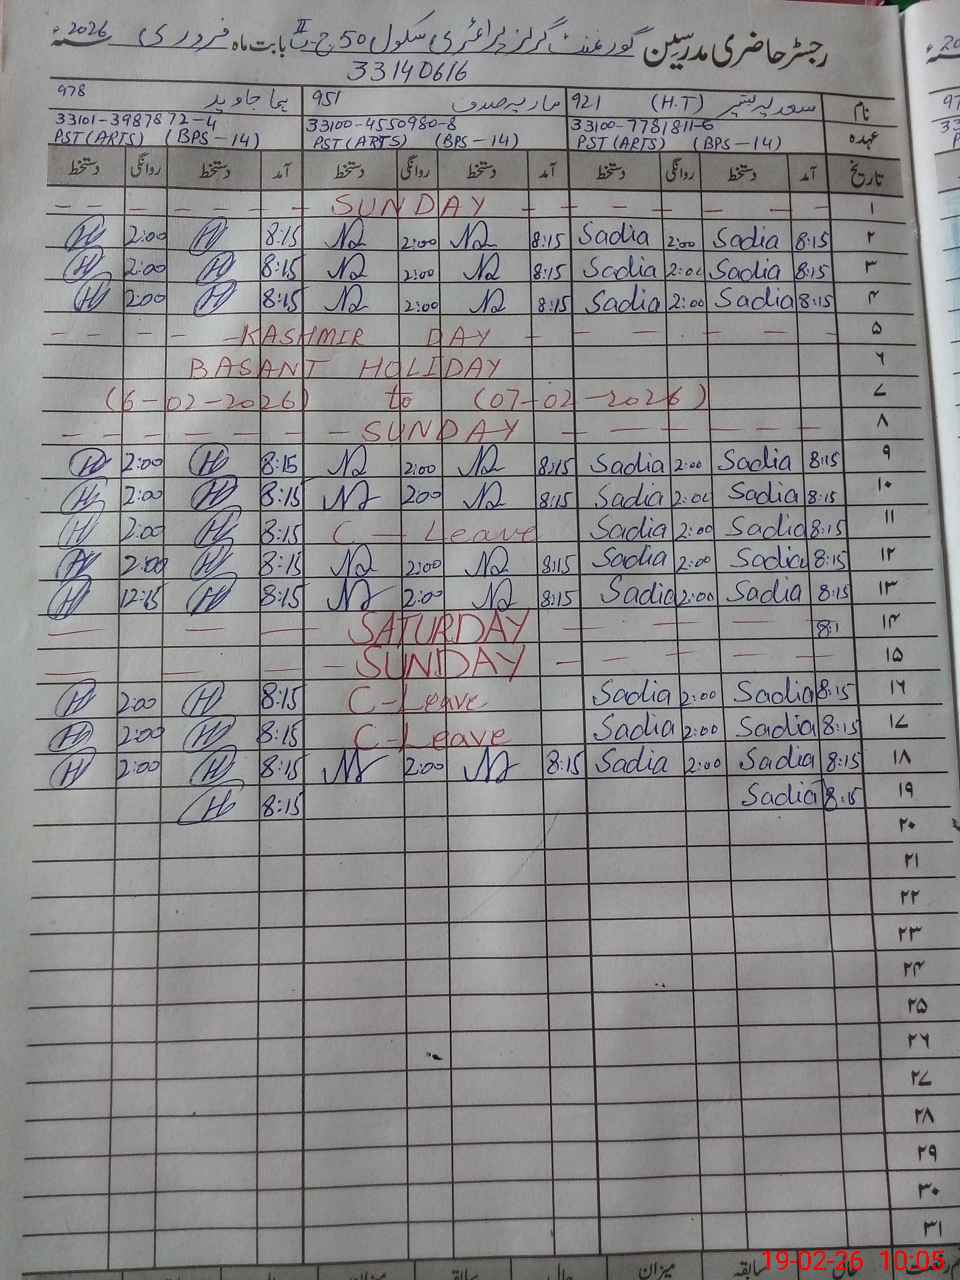 رجسٹر حاضری مدرسین گورنمنٹ گرلز پرائمری سکول 50 ج۔ب II بابت ماہ فروری سنہ 2026
33140616
نام 921 (H.T) 951 978 ہما جاوید
عہدہ 33100-7781811-6 33100-4550980-8 33101-3987872-4
PST (ARTS) (BPS-14) PST (ARTS) (BPS-14) PST (ARTS) (BPS-14)
تاریخ آمد دستخط روانگی دستخط آمد دستخط روانگی دستخط آمد دستخط روانگی دستخط
۱ SUNDAY
۲ 8:15 Sadia 2:00 Sadia 8:15 2:00 8:15 H 2:00 H
۳ 8:15 Sadia 2:00 Sadia 8:15 2:00 8:15 H 2:00 H
۴ 8:15 Sadia 2:00 Sadia 8:15 2:00 8:15 H 2:00 H
۵ KASHMIR DAY
۶ BASANT HOLIDAY
۷ (6-02-2026) to (07-02-2026)
۸ SUNDAY
۹ 8:15 Sadia 2:00 Sadia 8:15 2:00 8:15 H 2:00 H
۱۰ 8:15 Sadia 2:00 Sadia 8:15 200 8:15 H 2:00 H
۱۱ 8:15 Sadia 2:00 Sadia C-Leave 8:15 H 2:00 H
۱۲ 8:15 Sadia 2:00 Sadia 8:15 2:00 8:15 H 2:00 H
۱۳ 8:15 Sadia 2:00 Sadia 8:15 2:00 8:15 H 12:15 H
۱۴ 8:1 SATURDAY
۱۵ SUNDAY
۱۶ 8:15 Sadia 2:00 Sadia C-Leave 8:15 H 2:00 H
۱۷ 8:15 Sadia 2:00 Sadia C-Leave 8:15 H 2:00 H
۱۸ 8:15 Sadia 2:00 Sadia 8:15 2:00 8:15 H 2:00 H
۱۹ 8:15 Sadia 8:15 H
۲۰
۲۱
۲۲
۲۳
۲۴
۲۵
۲۶
۲۷
۲۸
۲۹
۳۰
۳۱
سابقہ میزان
19-02-26 10:05